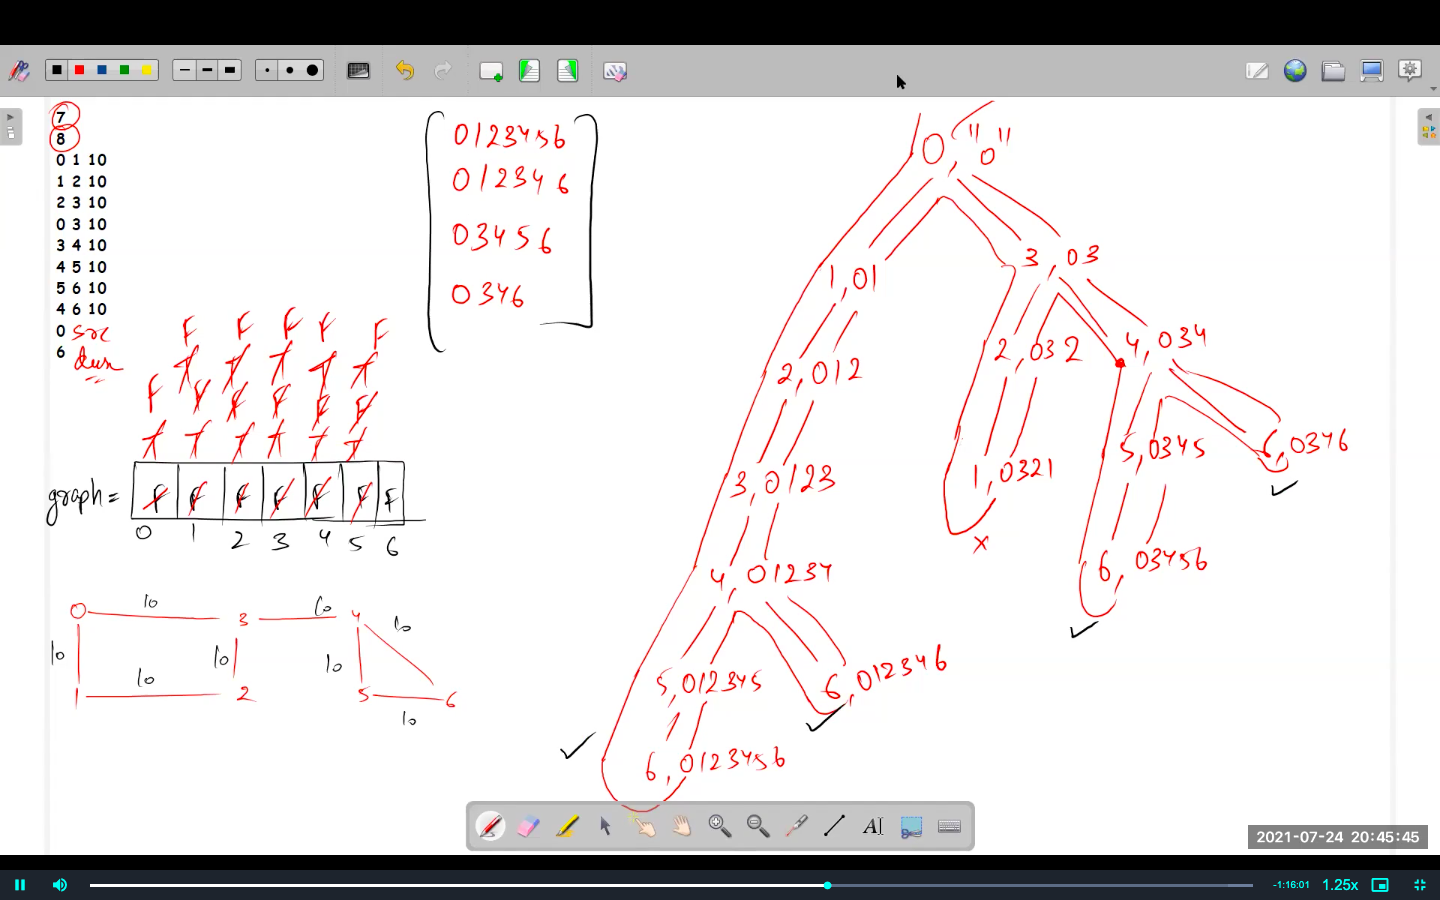 7
8
0 1 10
1 2 10
2 3 10
0 3 10
3 4 10
4 5 10
5 6 10
4 6 10
0 src
6
0123456
012346
03456
0346
F F F F F
T T T T T
F F F F F F
T T T T T T
graph = F F F F F F F
0 1 2 3 4 5 6
0 10 3 10 4 10
10 10 10
1 10 2 5 10 6
0, "0"
1,01
3,03
2,012
2,032
4,034
3,0123
1,0321
5,0345
6,0346
x
4,01234
6,03456
5,012345
6,012346
6,0123456
A
2021-07-24 20:45:45
-1:16:01 1.25x